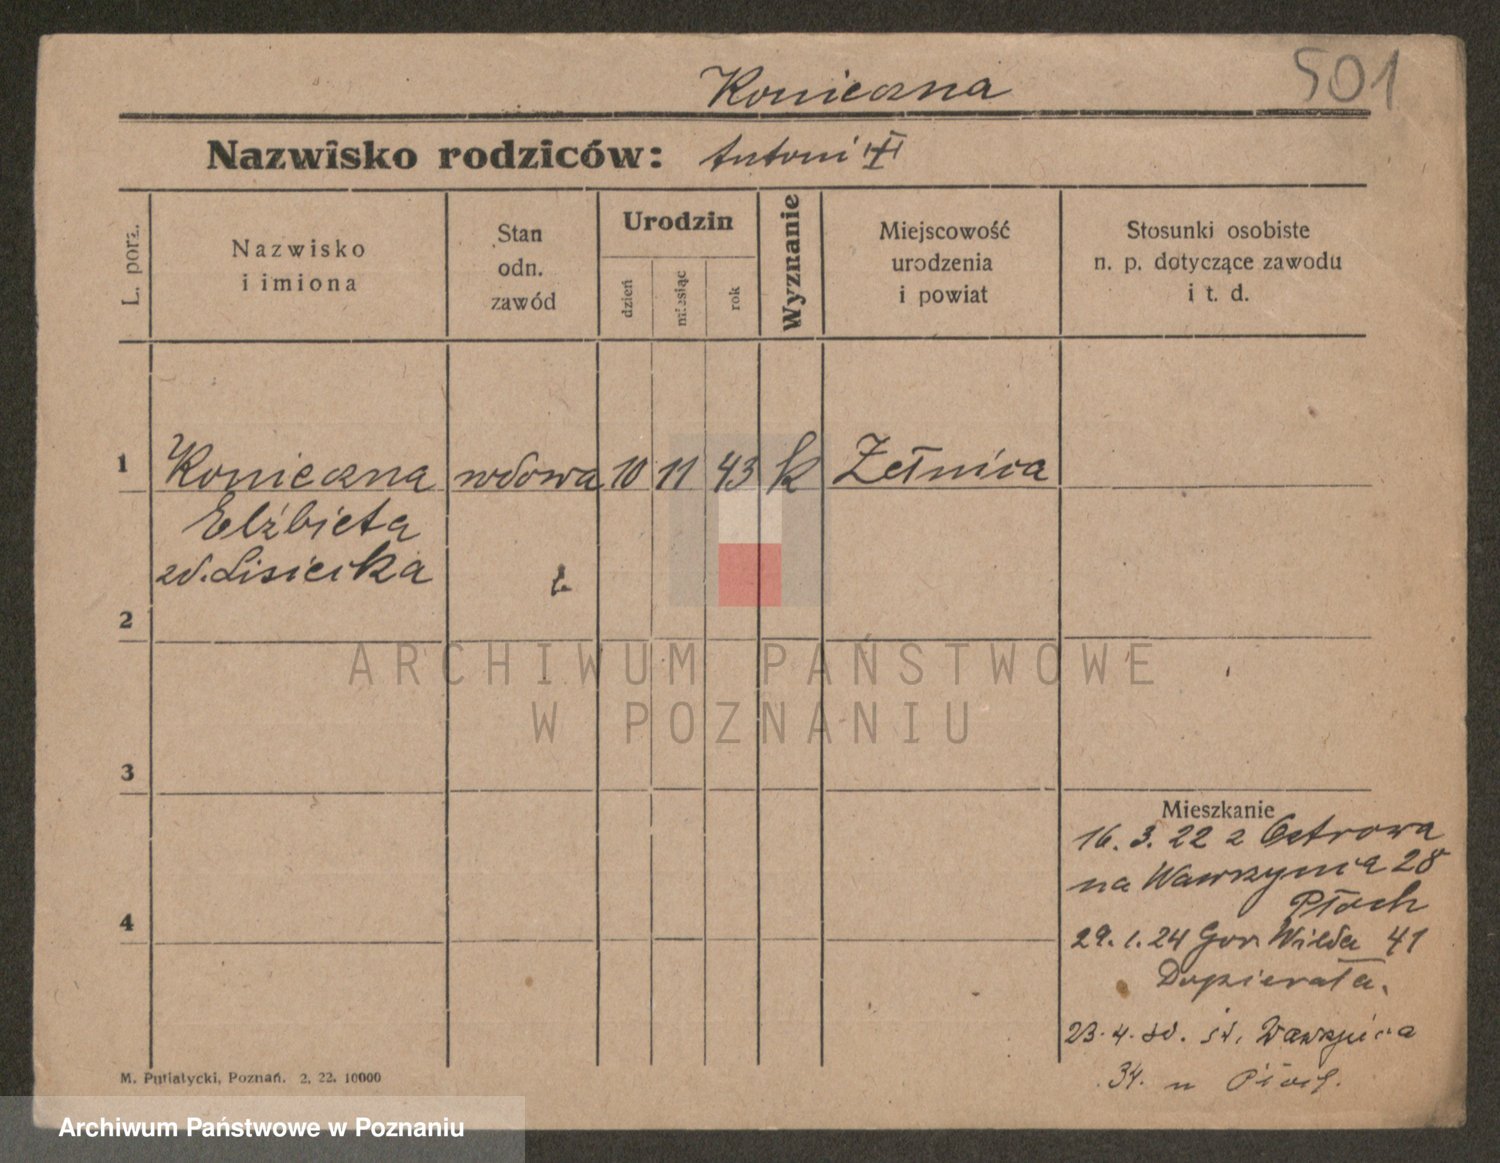 501
Konieczna
Nazwisko rodziców: Antoni
L. porz.
Nazwisko
i imiona
Stan
odn.
zawód
Urodzin
dzień
miesiąc
rok
Wyznanie
Miejscowość
urodzenia
i powiat
Stosunki osobiste
n. p. dotyczące zawodu
i t. d.
1 Konieczna wdowa 10 11 43 k Żełnica
Elżbieta
zd. Lisiecka
2
3
4
Mieszkanie
16. 3. 22 z Ostrowa
na Wawrzyńca 28
Płoch
29. 1. 24 Gór. Wilda 41
Dopierała.
23. 4. św. Wawrzyńca
34.
M. Putiatycki, Poznań. 2, 22. 10000
ARCHIWUM PAŃSTWOWE
W POZNANIU
Archiwum Państwowe w Poznaniu